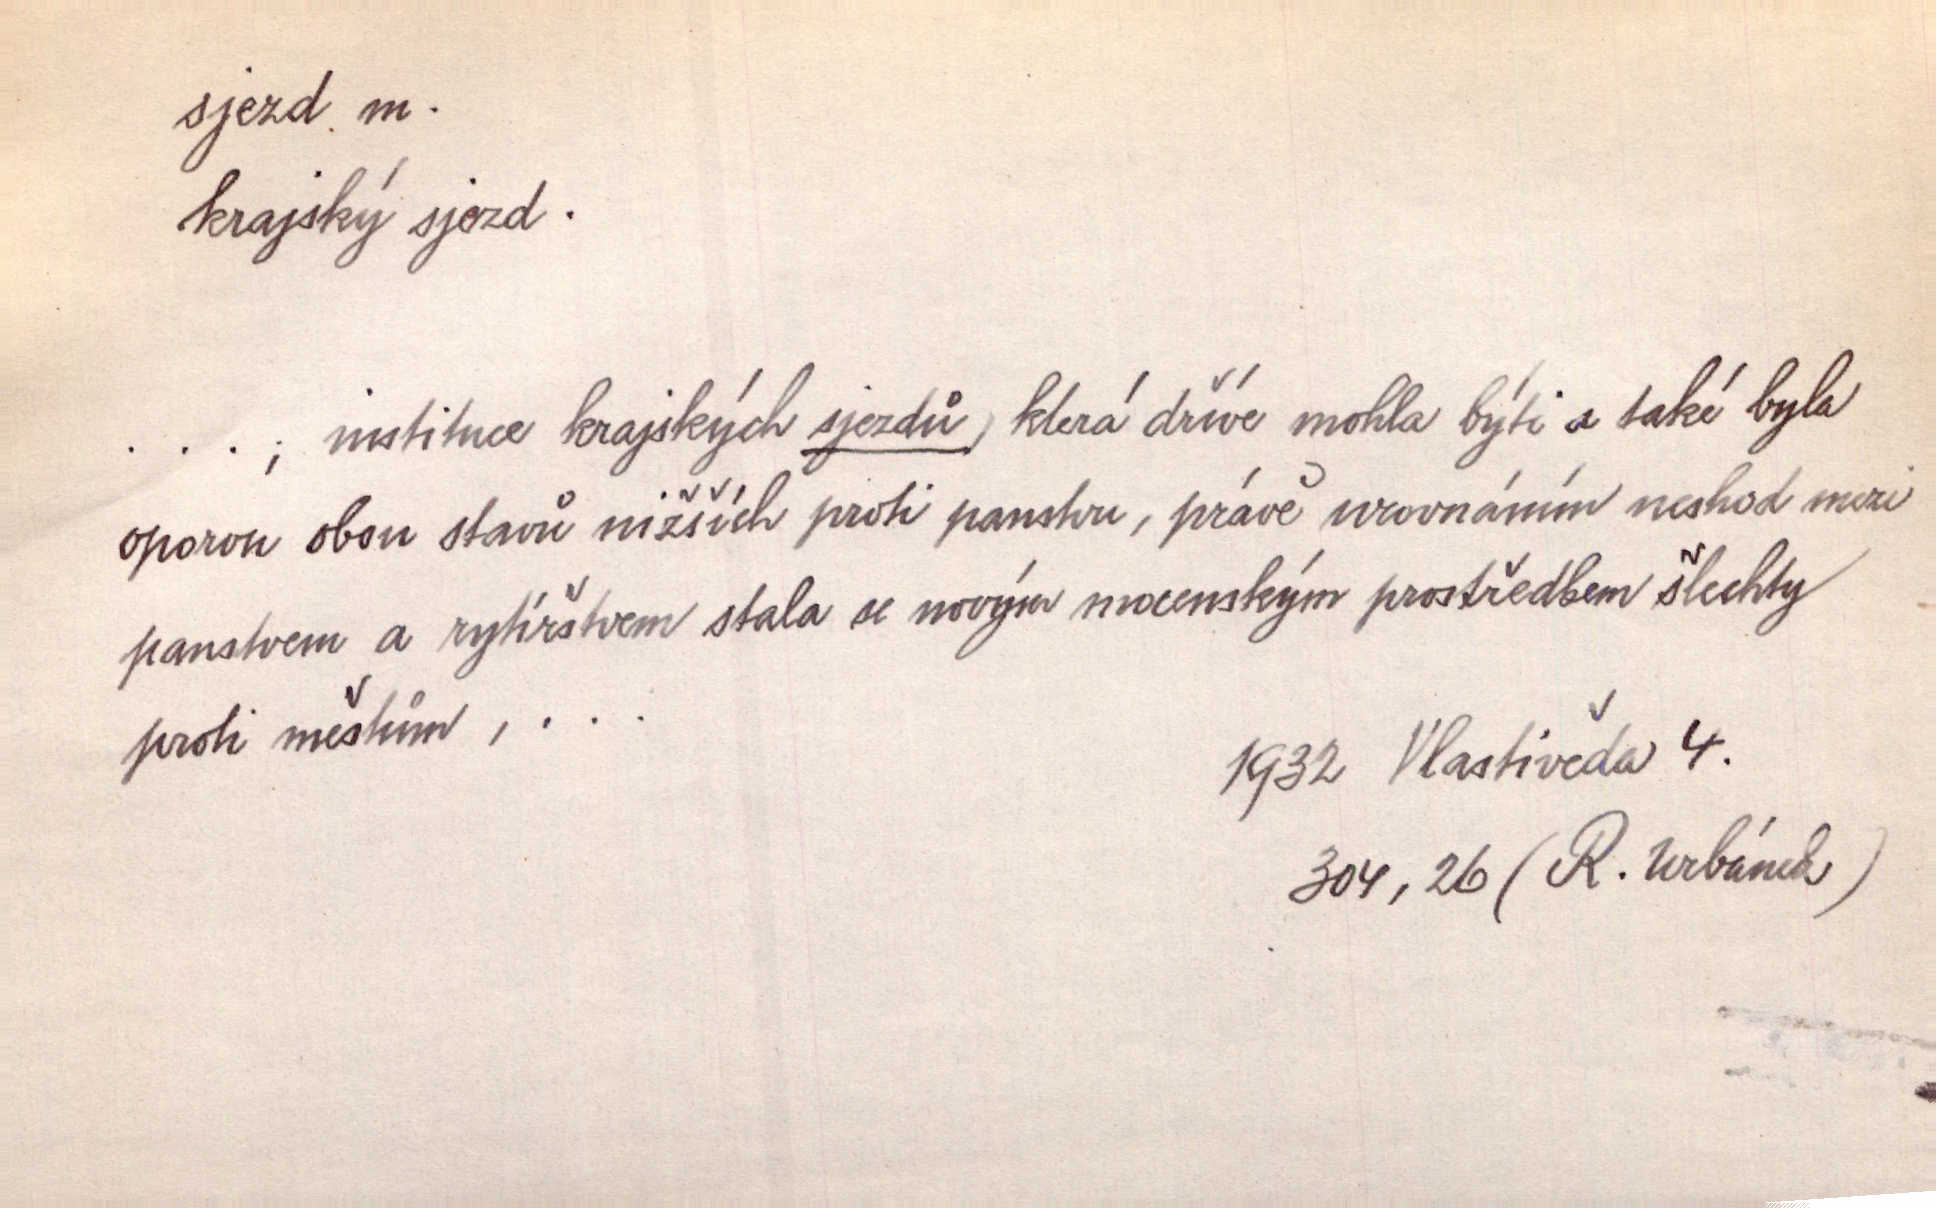 sjezd m.
krajský sjezd.
. . . ; instituce krajských sjezdů, která dříve mohla býti a také byla
oporou obou stavů nižších proti panstvu, právě urovnáním neshod mezi
panstvem a rytířstvem stala se novým mocenským prostředkem šlechty
proti městům, . . .
1932 Vlastivěda 4.
304, 26 (R. Urbánek)